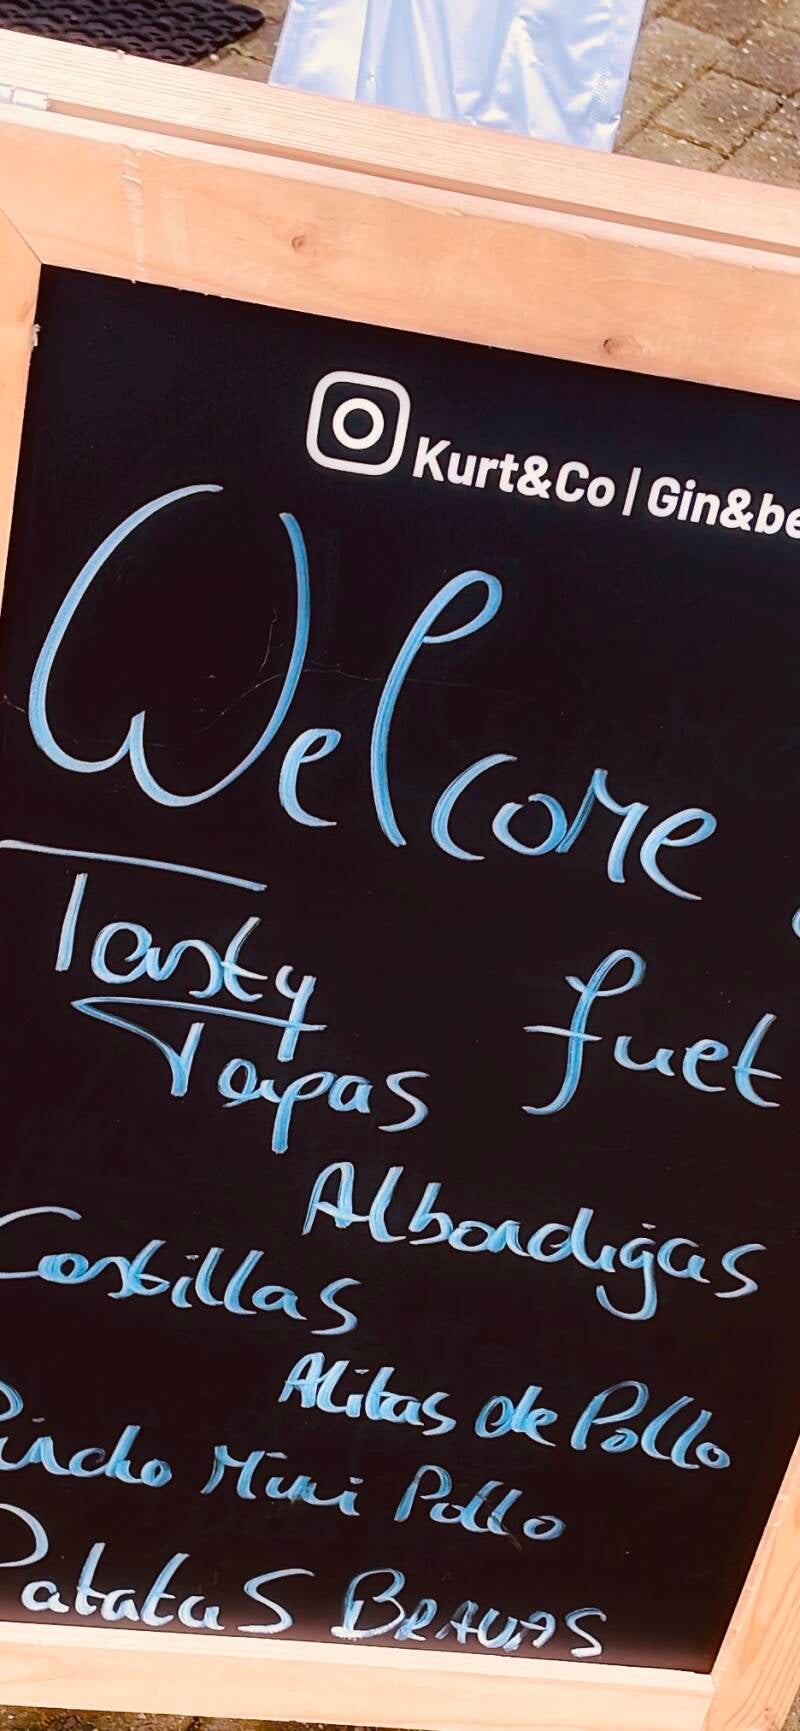 Kurt&Co | Gin&be
Welcome
Tasty
Tapas
fuet
Albondigas
Costillas
Alitas de Pollo
Pincho Mini Pollo
Patatas BRAVAS